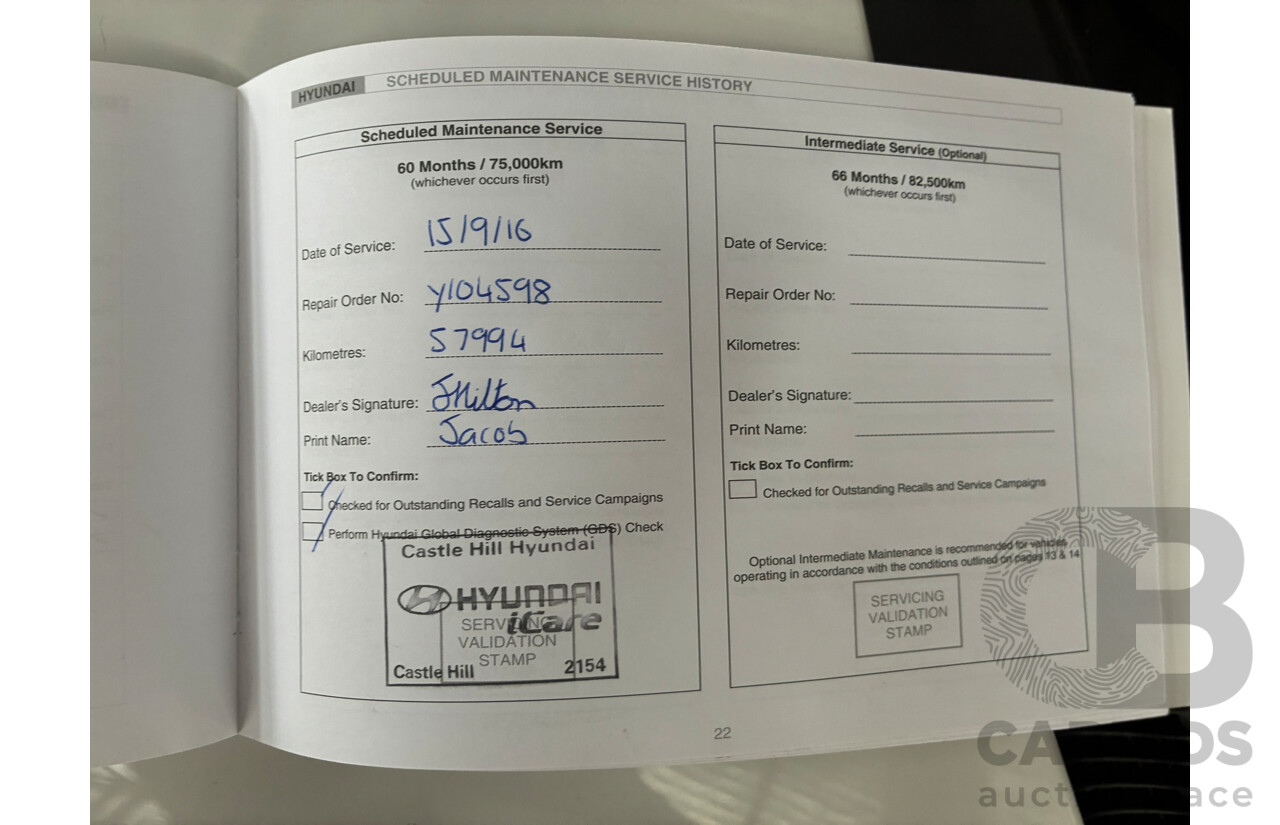 HYUNDAI SCHEDULED MAINTENANCE SERVICE HISTORY
Scheduled Maintenance Service
60 Months / 75,000km
(whichever occurs first)
Date of Service: 15/9/16
Repair Order No: Y104598
Kilometres: 57994
Dealer's Signature: JHilton
Print Name: Jacob
Tick Box To Confirm:
Checked for Outstanding Recalls and Service Campaigns
Perform Hyundai Global Diagnostic System (GDS) Check
Castle Hill Hyundai
HYUNDAI
iCare
SERVICING
VALIDATION
STAMP
Castle Hill 2154
Intermediate Service (Optional)
66 Months / 82,500km
(whichever occurs first)
Date of Service:
Repair Order No:
Kilometres:
Dealer's Signature:
Print Name:
Tick Box To Confirm:
Checked for Outstanding Recalls and Service Campaigns
Optional Intermediate Maintenance is recommended for vehicles
operating in accordance with the conditions outlined on pages 13 & 14
SERVICING
VALIDATION
STAMP
22